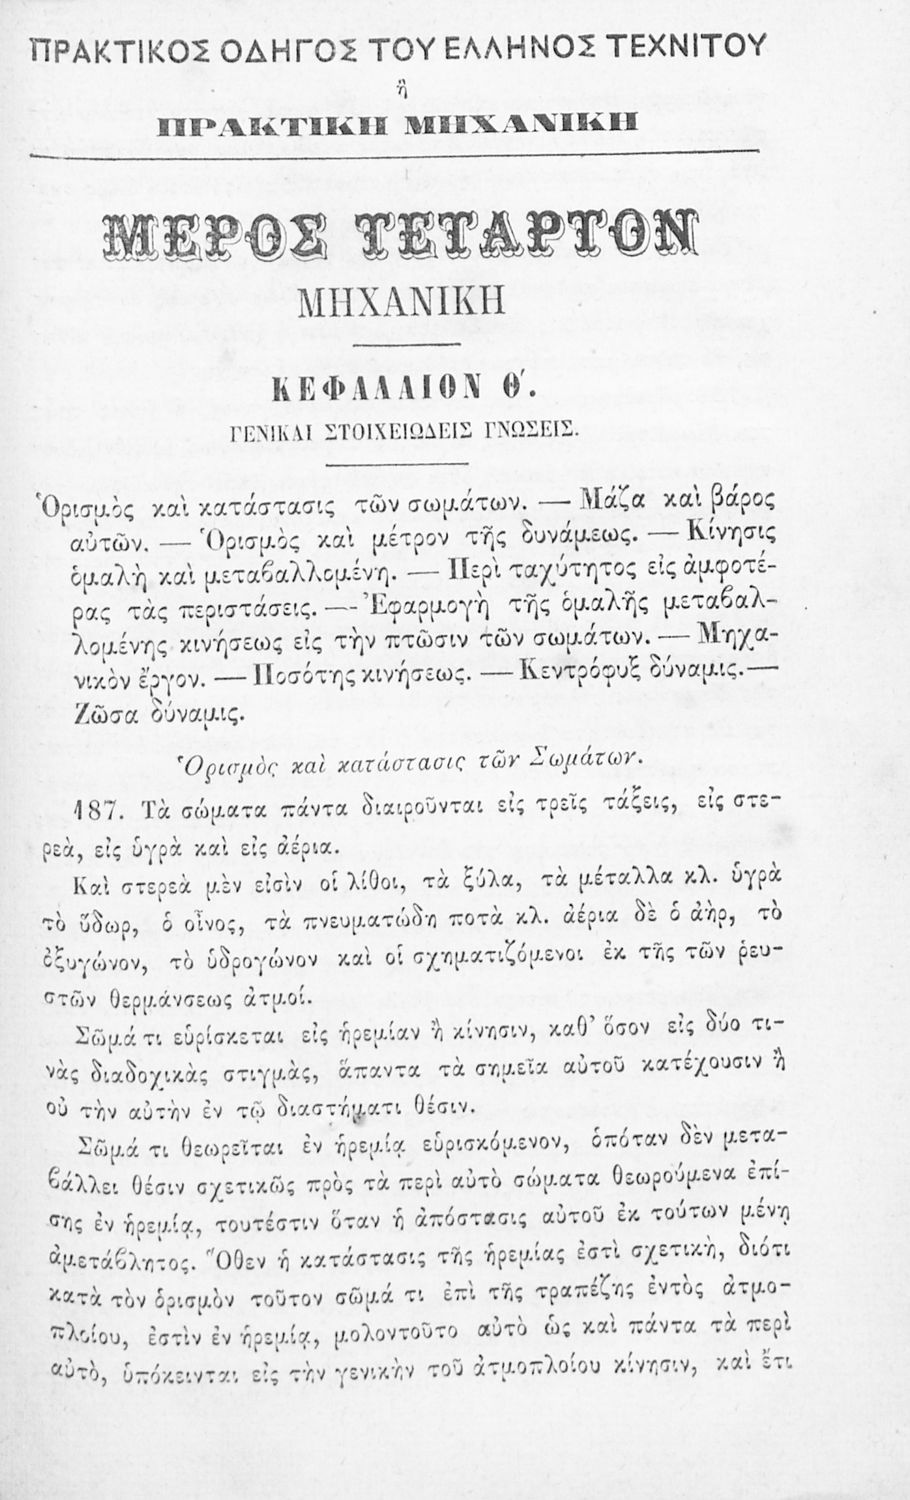 ΠΡΑΚΤΙΚΟΣ ΟΔΗΓΟΣ ΤΟΥ ΕΛΛΗΝΟΣ ΤΕΧΝΙΤΟΥ
ἢ
ΠΡΑΚΤΙΚΗ ΜΗΧΑΝΙΚΗ
ΜΕΡΟΣ ΤΕΤΑΡΤΟΝ
ΜΗΧΑΝΙΚΗ
ΚΕΦΑΛΑΙΟΝ Θ΄.
ΓΕΝΙΚΑΙ ΣΤΟΙΧΕΙΩΔΕΙΣ ΓΝΩΣΕΙΣ.
Ὁρισμὸς καὶ κατάστασις τῶν σωμάτων. — Μάζα καὶ βάρος
αὐτῶν. — Ὁρισμὸς καὶ μέτρον τῆς δυνάμεως. — Κίνησις
ὁμαλὴ καὶ μεταβαλλομένη. — Περὶ ταχύτητος εἰς ἀμφοτέ-
ρας τὰς περιστάσεις. — Ἐφαρμογὴ τῆς ὁμαλῆς μεταβαλ-
λομένης κινήσεως εἰς τὴν πτῶσιν τῶν σωμάτων. — Μηχα-
νικὸν ἔργον. — Ποσότης κινήσεως. — Κεντρόφυξ δύναμις. —
Ζῶσα δύναμις.
Ὁρισμὸς καὶ κατάστασις τῶν Σωμάτων.
187. Τὰ σώματα πάντα διαιροῦνται εἰς τρεῖς τάξεις, εἰς στε-
ρεὰ, εἰς ὑγρὰ καὶ εἰς ἀέρια.
Καὶ στερεὰ μὲν εἰσὶν οἱ λίθοι, τὰ ξύλα, τὰ μέταλλα κλ. ὑγρὰ
τὸ ὕδωρ, ὁ οἶνος, τὰ πνευματώδη ποτὰ κλ. ἀέρια δὲ ὁ ἀὴρ, τὸ
ὀξυγόνον, τὸ ὑδρογόνον καὶ οἱ σχηματιζόμενοι ἐκ τῆς τῶν ῥευ-
στῶν θερμάνσεως ἀτμοί.
Σῶμά τι εὑρίσκεται εἰς ἠρεμίαν ἢ κίνησιν, καθ’ ὅσον εἰς δύο τι-
νὰς διαδοχικὰς στιγμὰς, ἅπαντα τὰ σημεῖα αὐτοῦ κατέχουσιν ἢ
οὐ τὴν αὐτὴν ἐν τῷ διαστήματι θέσιν.
Σῶμά τι θεωρεῖται ἐν ἠρεμίᾳ εὑρισκόμενον, ὁπόταν δὲν μετα-
βάλλει θέσιν σχετικῶς πρὸς τὰ περὶ αὐτὸ σώματα θεωρούμενα ἐπί-
σης ἐν ἠρεμίᾳ, τουτέστιν ὅταν ἡ ἀπόστασις αὐτοῦ ἐκ τούτων μένῃ
ἀμετάβλητος. Ὅθεν ἡ κατάστασις τῆς ἠρεμίας ἐστὶ σχετικὴ, διότι
κατὰ τὸν ὁρισμὸν τοῦτον σῶμά τι ἐπὶ τῆς τραπέζης ἐντὸς ἀτμο-
πλοίου, ἐστὶν ἐν ἠρεμίᾳ, μολοντοῦτο αὐτὸ ὡς καὶ πάντα τὰ περὶ
αὐτὸ, ὑπόκεινται εἰς τὴν γενικὴν τοῦ ἀτμοπλοίου κίνησιν, καὶ ἔτι